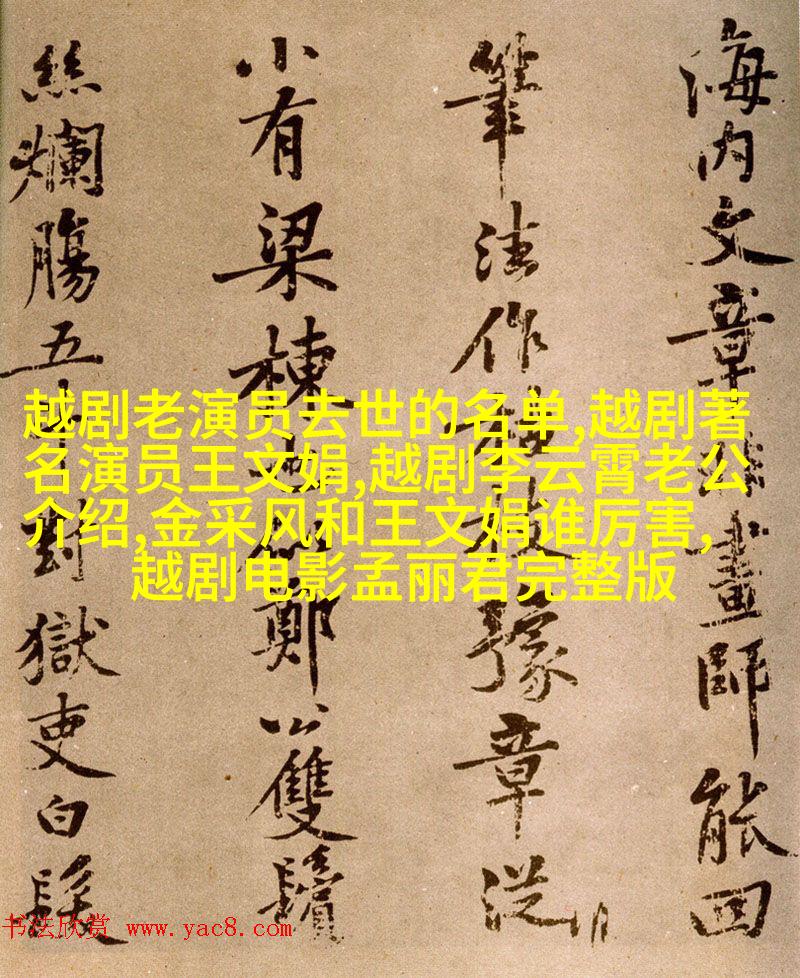 海内文章非畫師能回
筆法作枯枝豫章從
小有梁棟也似鄭公雙鬢
絲爛腸五斗對獄吏白髮
越剧老演员去世的名单,越剧著
名演员王文娟,越剧李云霄老公
介绍,金采风和王文娟谁厉害,
越剧电影孟丽君完整版
书法欣赏 www.yac8.com